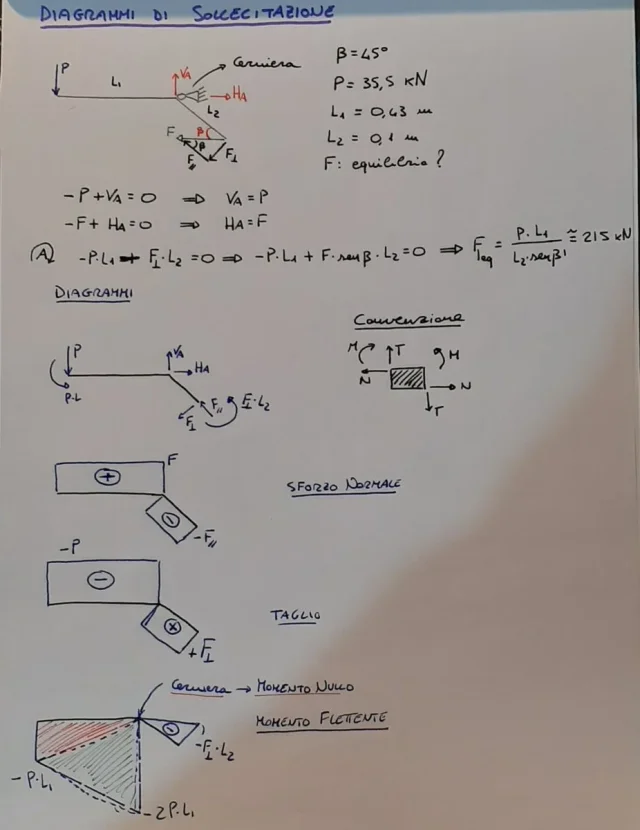 DIAGRAMMI DI SOLLECITAZIONE
P L₁ VA Cerniera HA L₂
F β β F// F⊥
β=45°
P= 35,5 kN
L₁ = 0,63 m
L₂ = 0,1 m
F: equilibrio ?
-P+VA=0 ⇒ VA=P
-F+HA=0 ⇒ HA=F
A) -P·L₁ + F⊥·L₂ =0 ⇒ -P·L₁ + F·senβ·L₂=0 ⇒ Feq = P·L₁ / L₂·senβ ≅ 215 kN
DIAGRAMMI
Convenzione
M T M
N N
T
P VA HA
P·L
F⊥ F// F⊥·L₂
+ F
SFORZO NORMALE
- -F//
-P
-
TAGLIO
+ +F⊥
Cerniera → MOMENTO NULLO
MOMENTO FLETTENTE
- -F⊥·L₂
-P·L₁
-2P·L₁